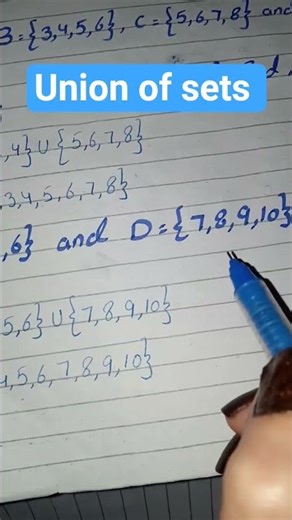 3={3,4,5,6}, C={5,6,7,8} and
Union of sets
,4}U{5,6,7,8}
,3,4,5,6,7,8}
,6} and D={7,8,9,10}
5,6}U{7,8,9,10}
4,5,6,7,8,9,10}